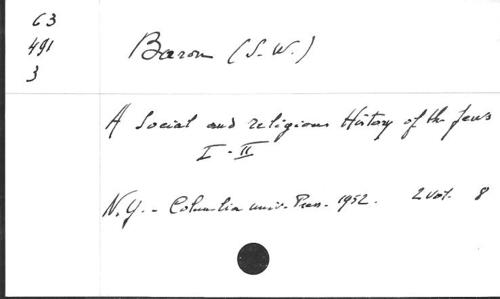 63
491
3
Baron (S.W.)
A Social and religious History of the Jews
I - II
N.Y. - Columbia univ. Press. 1952. 2 vol. 8